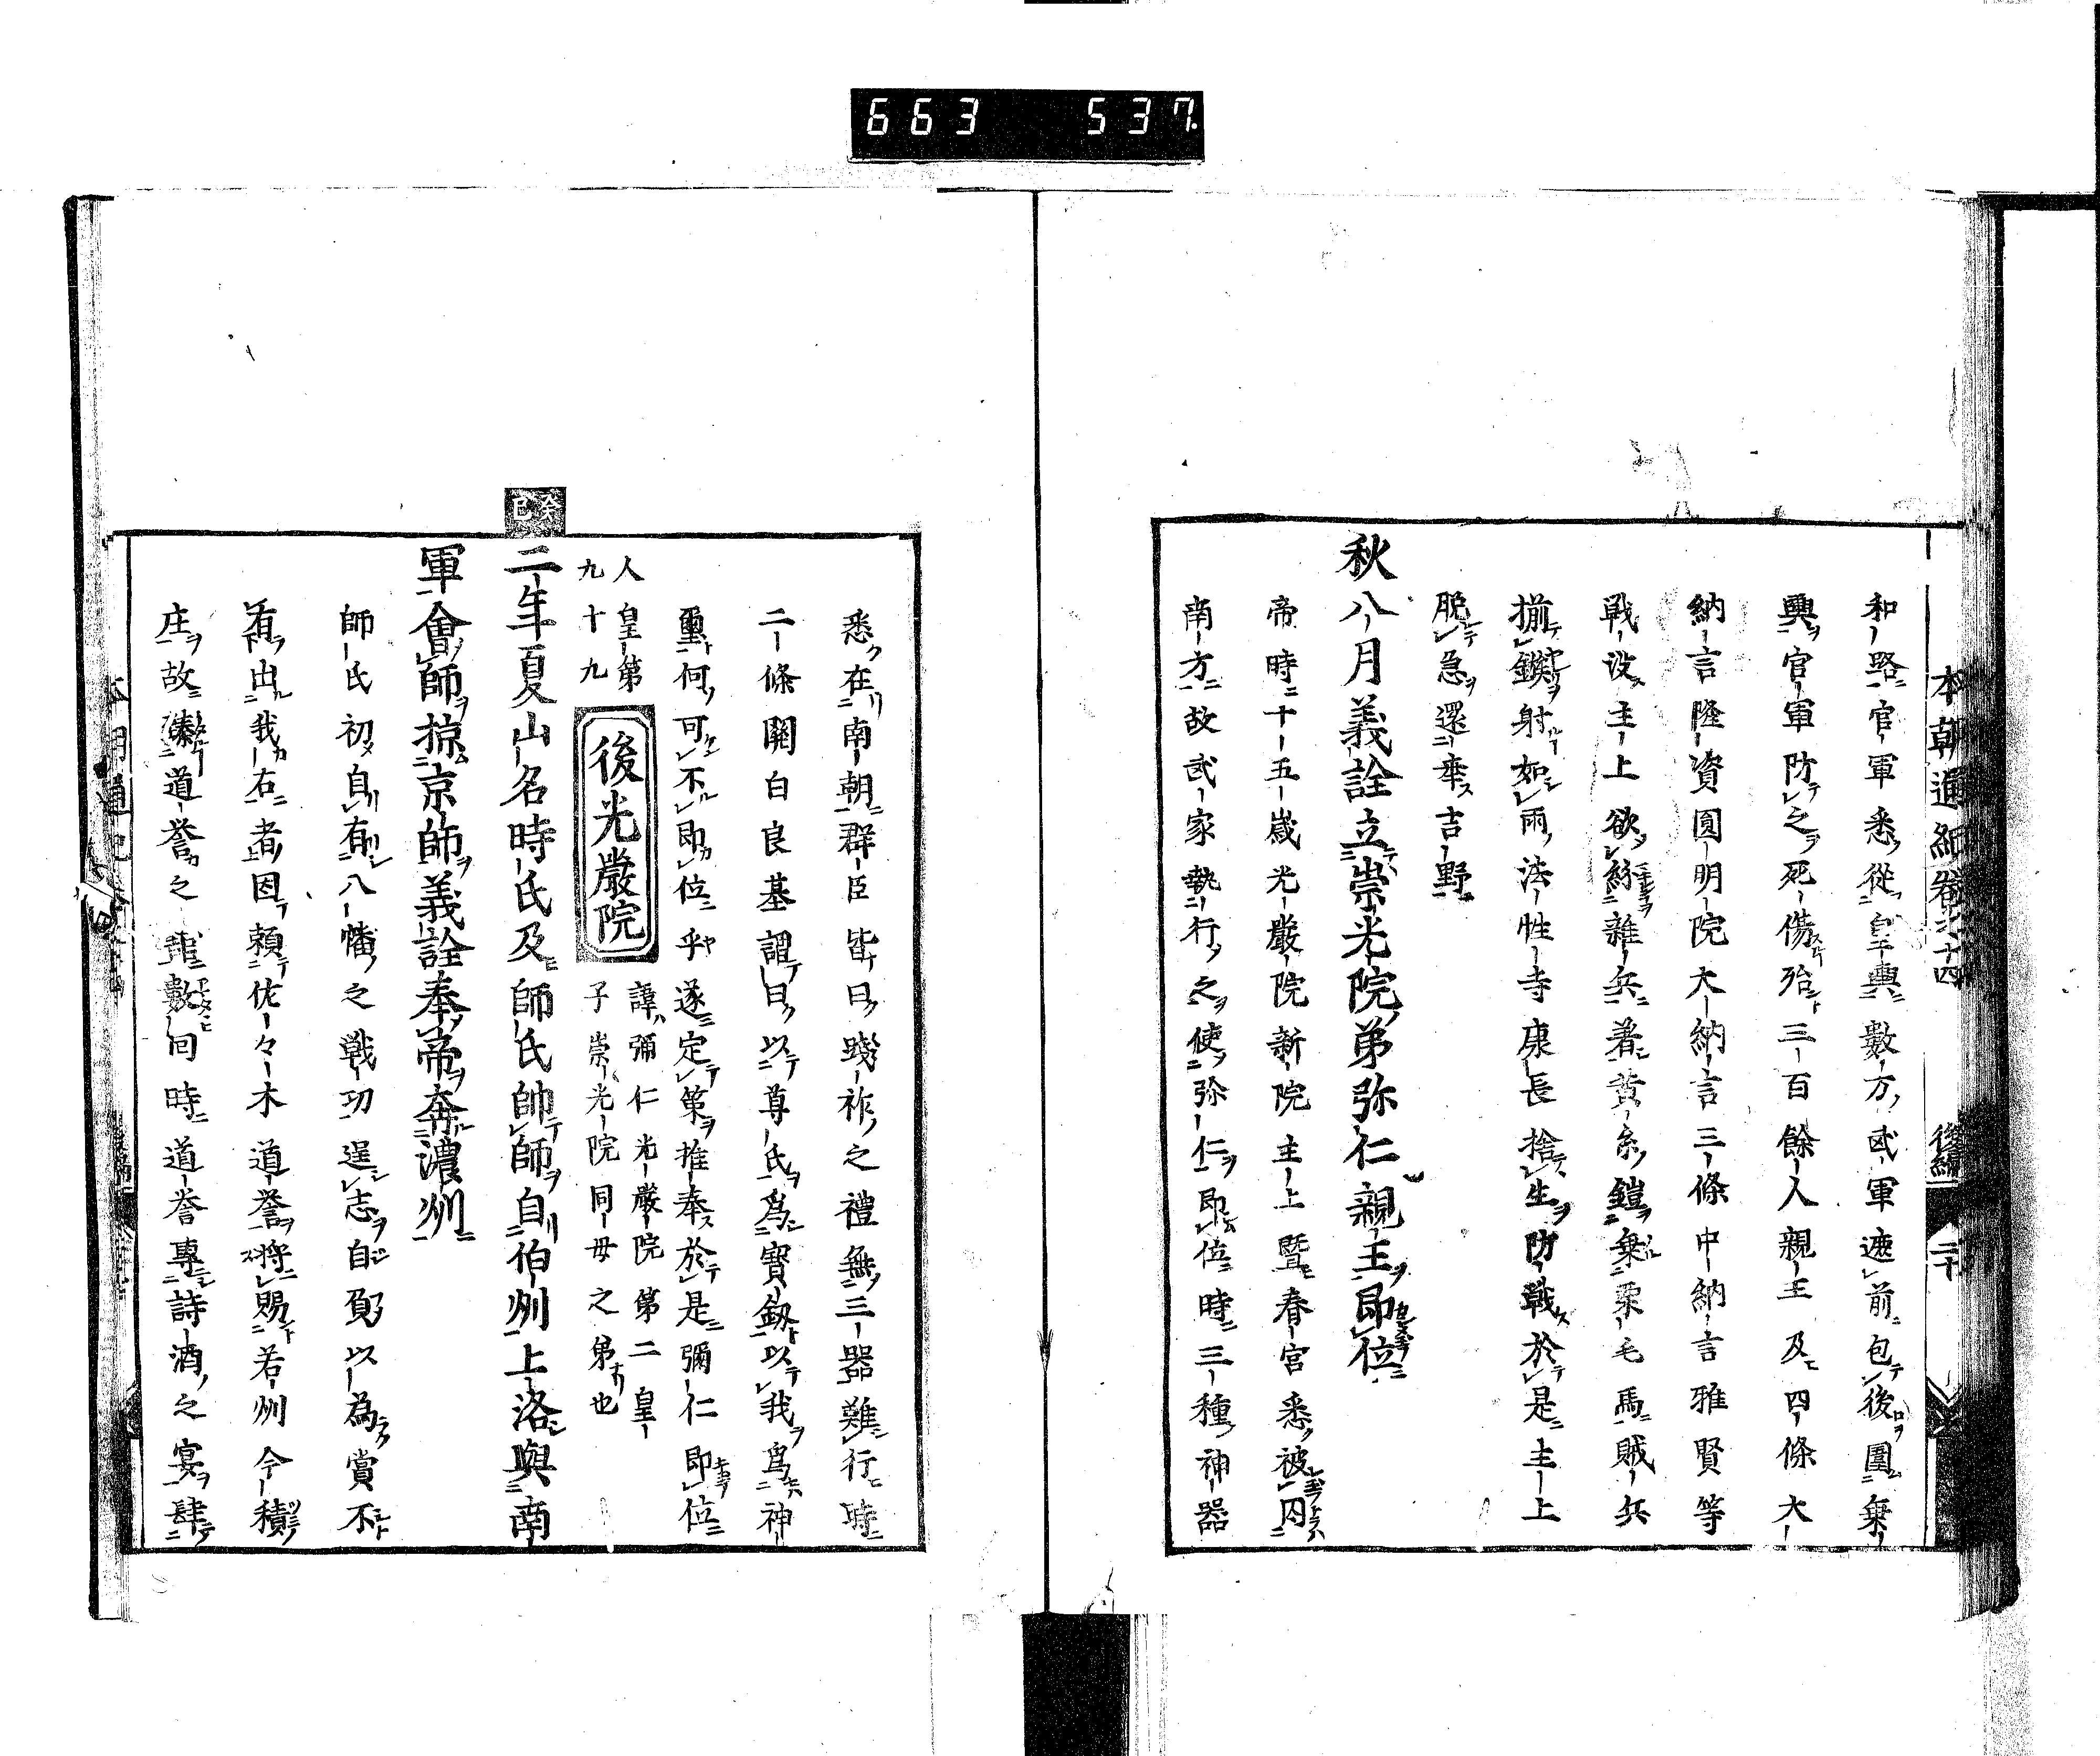 663 537
本朝通紀卷六十四 後編 二十
和路官軍悉從皇輿數方武軍遮前包後圍棄
輿官軍防之死傷殆三百餘人親王及四條大
納言隆資圓明院大納言三條中納言雅賢等
戰没主上欲紛雜兵着黃糸鎧乗栗毛馬賊兵
揃鏃射如雨法性寺康長捨生防戰於是主上
脱急還幸吉野
秋八月義詮立崇光院弟弥仁親王即位
帝時十五歳光嚴院新院主上曁春宮悉被囚
南方故武家執行之使弥仁即位時三種神器
悉在南朝群臣皆曰踐祚之禮無三器難行時
二條關白良基謂曰以尊氏爲寳劔以我爲神
璽何可不即位乎遂定策推奉於是彌仁即位
人皇第九十九
後光嚴院
諱彌仁光嚴院第二皇
子崇光院同母之弟也
癸巳
二年夏山名時氏及師氏帥師自伯州上洛與南
軍會師掠京師義詮奉帝奔濃州
師氏初自有八幡之戰功逞志自負以為賞不
有出我右者因頼佐々木道誉將賜若州今積
庄故臻道誉之館數回時道誉專詩酒之宴肆